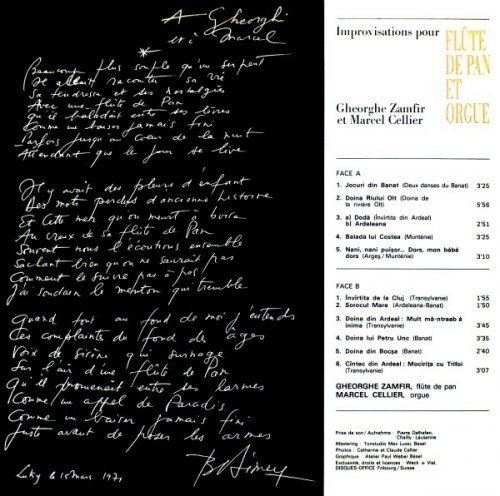 A Gheorghi
et à Marcel
Beaucoup plus souple qu'un serpent
Il allait raconter sa vie
Sa tendresse et ses nostalgies
Avec une flûte de Pan
Qu'il baladait entre ses lèvres
Comme un baiser jamais fini
Parfois jusqu'au cœur de la nuit
Attendant que le jour se lève
Il y avait des pleurs d'enfant
Des mots perdus d'ancienne histoire
Et cette mer qu'on meurt à boire
Au creux de sa flûte de Pan
Souvent nous l'écoutions ensemble
Sachant bien qu'on ne saurait pas
Comment le suivre pas à pas
J'ai soudain le menton qui tremble
Quand tout au fond de moi j'entends
Ces complaintes du fond des âges
Voix de sirène qui surnage
Sur l'air d'une flûte de Pan
Qu'il promenait entre ses larmes
Comme un appel de Paradis
Comme un baiser jamais fini
Juste avant de poser les armes
le 15 mars 1971
Improvisations pour
FLÛTE
DE PAN
ET
ORGUE
Gheorghe Zamfir
et Marcel Cellier
FACE A
1. Jocuri din Banat (Deux danses du Banat) 3'25
2. Doina Rîului Olt (Doina de
la rivière Olt) 5'56
3. a) Dodă (Învîrtita din Ardeal)
b) Ardeleana 2'51
4. Balada lui Costea (Munténie) 3'25
5. Nani, nani puişor... Dors, mon bébé
dors (Argeş/Munténie) 3'10
FACE B
1. Învîrtita de la Cluj (Transylvanie) 1'55
2. Sorocul Mare (Ardeleana-Banat) 1'50
3. Doina din Ardeal : Mult mă-ntreab'ă
inima (Transylvanie) 3'45
4. Doina lui Petru Unc (Banat) 3'35
5. Doina din Bocşa (Banat) 2'40
6. Cîntec din Ardeal : Mociriţa cu Trifoi
(Transylvanie) 3'07
GHEORGHE ZAMFIR, flûte de pan
MARCEL CELLIER, orgue
Prise de son / Aufnahme : Pierre Delhafen,
Chailly - Lausanne
Mastering : Tonstudio Max Lussi, Basel
Photos : Catherine et Claude Cellier
Graphique : Atelier Paul Weber Basel
Exclusivité, droits et licences : Weck + Viel,
DISQUES-OFFICE Fribourg / Suisse